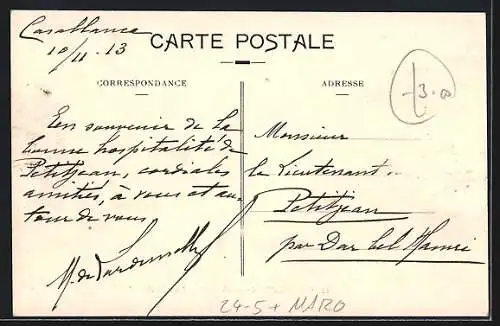 Casablanca
10/11 . 13
CARTE POSTALE
CORRESPONDANCE
ADRESSE
En souvenir de la
bonne hospitalité de
Petitjean, cordiales
amitiés, à vous et au-
tour de vous
M. de
Monsieur
le Lieutenant
Petitjean
par Dar bel Hamri
3.00
24-5 + MARO